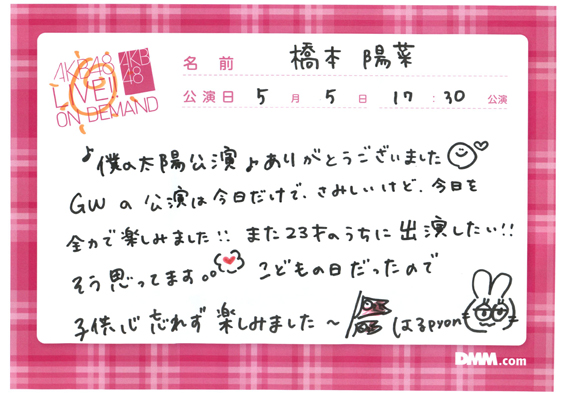 AKB48
LIVE!!
ON DEMAND
AKB
48
名前 橋本 陽菜
公演日 5月5日 17:30 公演
♪僕の太陽公演♪ありがとうございました
GWの公演は今日だけで、さみしいけど、今日を
全力で楽しみました!! また23才のうちに出演したい!!
そう思ってます。。 こどもの日だったので
子供心忘れず楽しみました〜 はるpyon
DMM.com